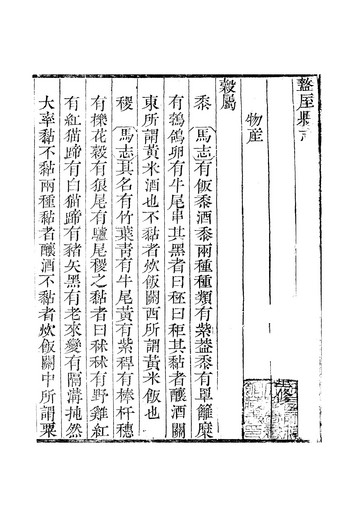 盩厔縣志
物產
穀屬
黍馬志有飯黍酒黍兩種種類有紫蓋黍有單籬糜
有鵓鴿卵有牛尾串其黑者曰秠曰秬其黏者釀酒關
東所謂黃米酒也不黏者炊飯關西所謂黃米飯也
稷馬志其名有竹葉靑有牛尾黃有紫稈有棒杆穗
有櫟花穀有狼尾有驢尾稷之黏者曰秫秫有野雞紅
有紅猫蹄有白猫蹄有豬矢黑有老來變有隔溝㧯然
大率黏不黏兩種黏者釀酒不黏者炊飯關中所謂粟